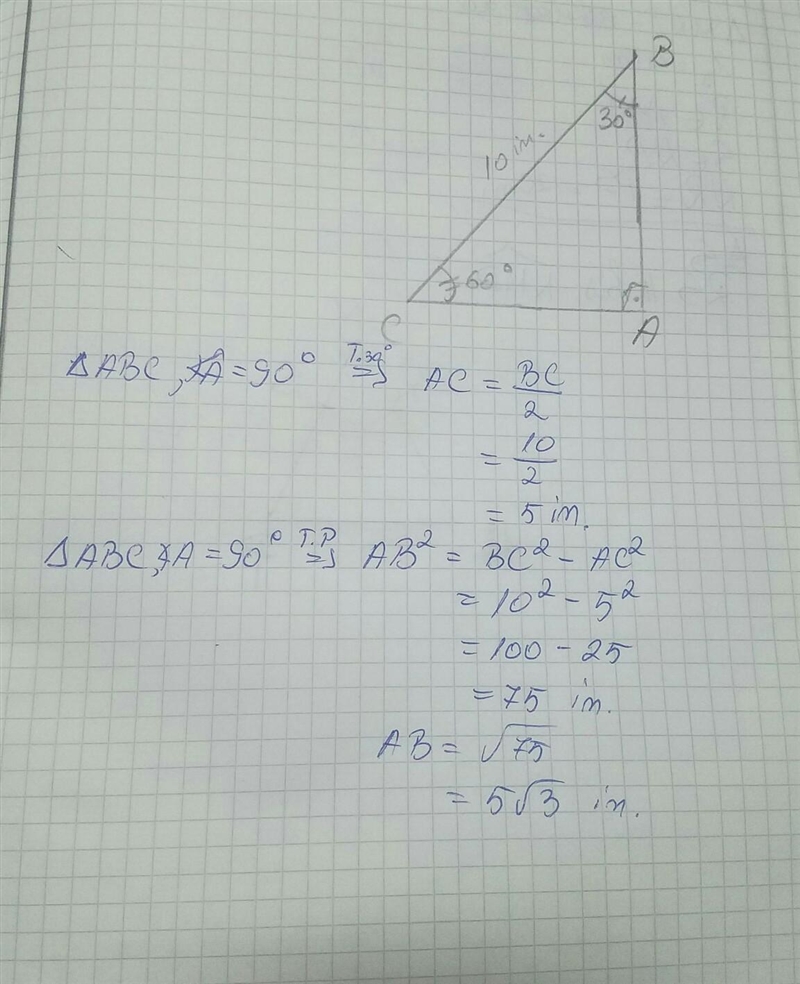 B
30°
10 in.
60°
C
A
ΔABC, ∢A = 90° T.30° ⇒ AC = BC/2
= 10/2
= 5 in.
ΔABC, ∢A = 90° T.P ⇒ AB² = BC² – AC²
= 10² – 5²
= 100 – 25
= 75 in.
AB = √75
= 5√3 in.